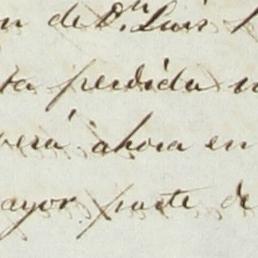 n de Dn Luis
ta perdida
verá ahora en
ayor parte de